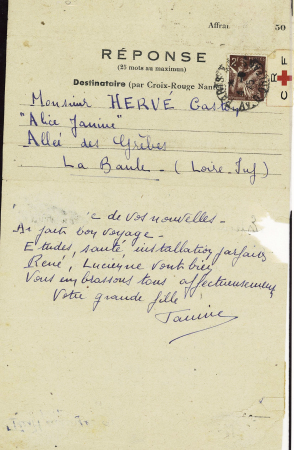 Affran 50
RÉPONSE
(25 mots au maximum)
Destinataire (par Croix-Rouge Nan
Monsieur HERVE Gaston
"Alice Janine"
Allée des Grèbes
La Baule - (Loire-Inf)
CRF
de vos nouvelles -
Ai fait bon voyage -
Etudes, santé, installation parfaites
René, Lucienne vont bien
Vous embrassons tous affectueusement
Votre grande fille
Janine